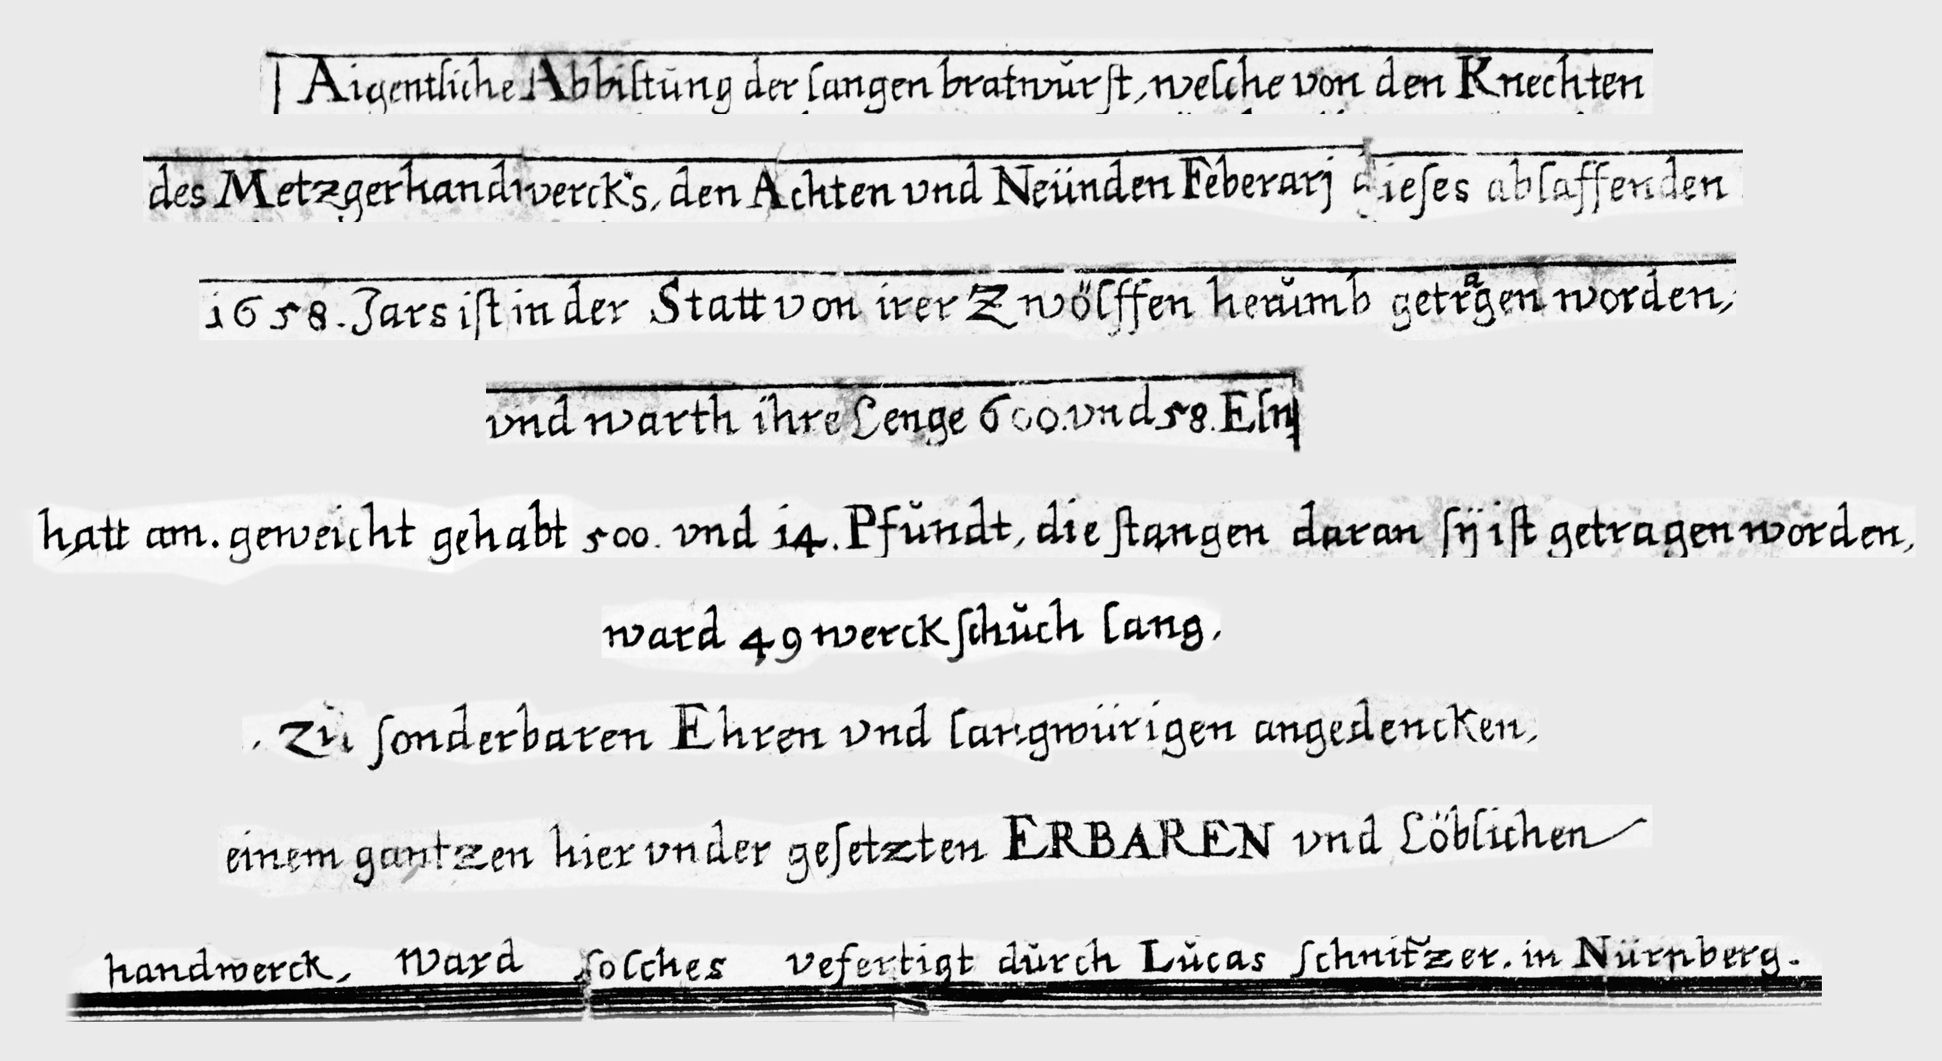 Aigentliche Abbiltŭng der langen bratwŭrſt, welche von den Knechten
des Metzgerhandwercks, den Achten vnd Neünden Feberarj dieſes ablaffenden
1658. Jars iſt in der Statt von irer Zwölffen heŭmb getragen worden,
vnd warth ihre Lenge 600. vnd 58. Eln
hatt am. geweicht gehabt 500. vnd 14. Pfŭndt, die ſtangen daran ſÿ iſt getragen worden,
ward 49 werckſchŭch lang,
, Zŭ ſonderbaren Ehren vnd langwürigen angedencken,
einem gantzen hier vnder geſetzten ERBAREN vnd Löblichen
handwerck, Ward ſolches vefertigt dŭrch Lŭcas ſchnitzer. in Nürnberg.